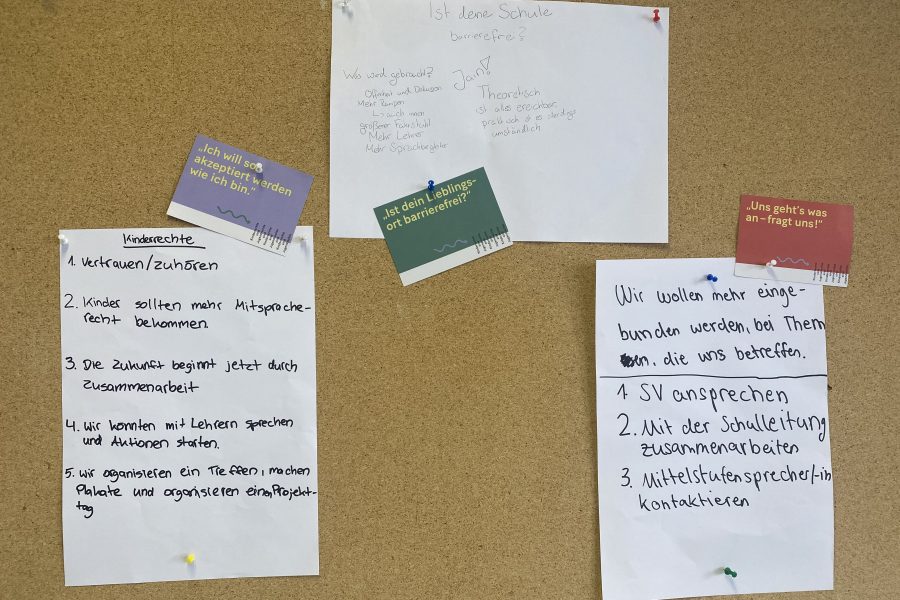 Ist deine Schule
barrierefrei?
Was wird gebraucht?
Offenheit und
Mehr Rampen
größerer Fahrstuhl
Mehr Lehrer
Mehr Sprachbegleiter
Jain!
Theoretisch
ist alles erreichbar
praktisch ist es allerdings
umständlich
„Ich will so
akzeptiert werden
wie ich bin.“
„Ist dein Lieblings-
ort barrierefrei?“
„Uns geht's was
an – fragt uns!“
Kinderrechte
1. Vertrauen/zuhören
2. Kinder sollten mehr Mitsprache-
recht bekommen.
3. Die Zukunft beginnt jetzt durch
Zusammenarbeit
4. Wir könnten mit Lehrern sprechen
und Aktionen starten.
5. Wir organisieren ein Treffen, machen
Plakate und organisieren einen Projekt-
tag
Wir wollen mehr einge-
bunden werden, bei Them
en, die uns betreffen.
1. SV ansprechen
2. Mit der Schulleitung
zusammenarbeiten
3. Mittelstufensprecher/-in
kontaktieren